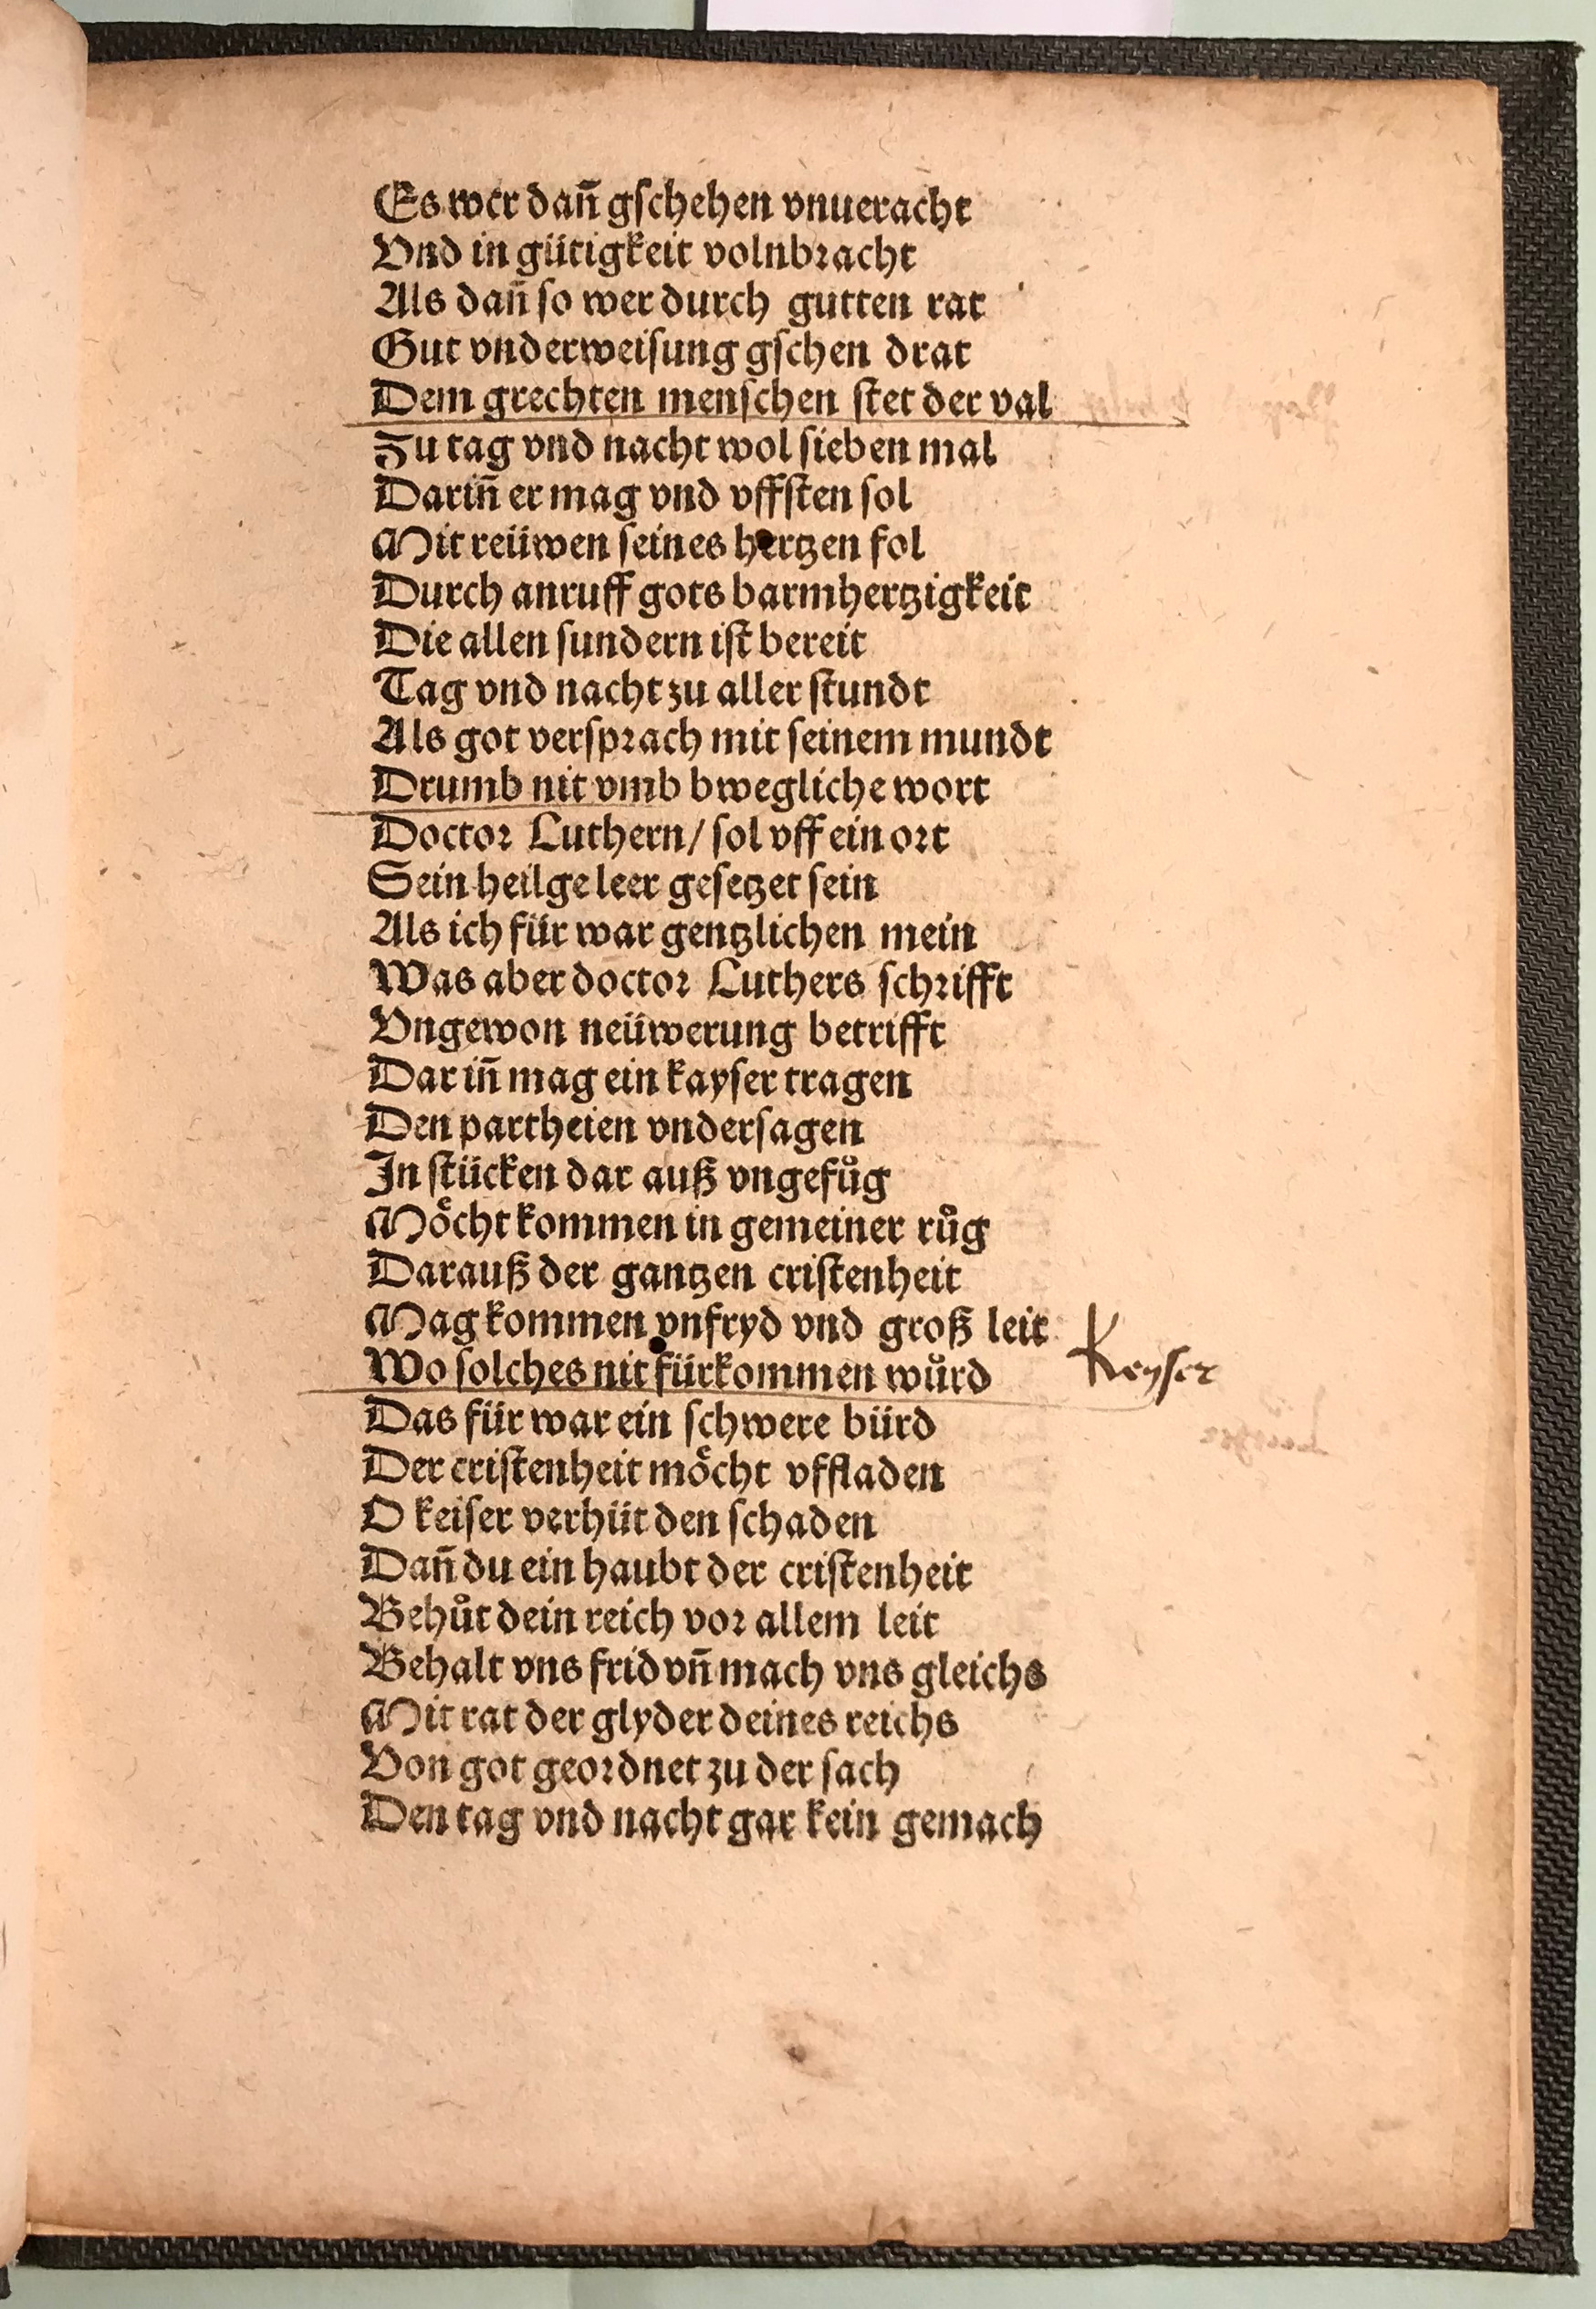 Es wer dañ gschehen vnueracht
Vnd in gütigkeit volnbracht
Als dañ so wer durch gutten rat
Gut vnderweisung gschen drat
Dem grechten menschen stet der val
Zu tag vnd nacht wol sieben mal
Dariñ er mag vnd vffsten sol
Mit reüwen seines hertzen fol
Durch anruff gots barmhertzigkeit
Die allen sundern ist bereit
Tag vnd nacht zu aller stundt
Als got versprach mit seinem mundt
Drumb nit vmb bwegliche wort
Doctor Luthern/ sol vff ein ort
Sein heilge leer gesetzet sein
Als ich für war gentzlichen mein
Was aber doctor Luthers schrifft
Vngewon neüwerung betrifft
Dar iñ mag ein kayser tragen
Den partheien vndersagen
In stücken dar auß vngefůg
Möcht kommen in gemeiner růg
Darauß der gantzen cristenheit
Mag kommen vnfryd vnd groß leit
Keyser
Wo solches nit fürkommen wůrd
Das für war ein schwere bürd
Der cristenheit möcht vffladen
O keiser verhüt den schaden
Dañ du ein haubt der cristenheit
Behůt dein reich vor allem leit
Behalt vns frid vñ mach vns gleichs
Mit rat der glyder deines reichs
Von got geordnet zu der sach
Den tag vnd nacht gar kein gemach